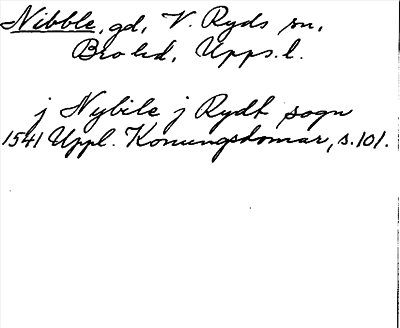 Nibble, gd, V. Ryds sn,
Bro hd, Upps. l.
j Nybile j Rydh sogn
1541 Uppl. Konungsdomar, s. 101.